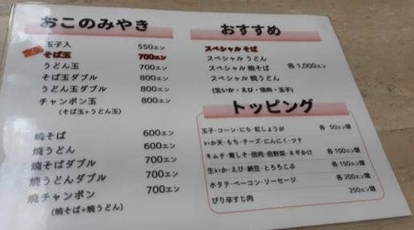 おこのみやき
玉子入 550エン
そば玉 700エン
うどん玉 700エン
そば玉ダブル 800エン
うどん玉ダブル 800エン
チャンポン玉 800エン
(そば玉+うどん玉)
焼そば 600エン
焼うどん 600エン
焼そばダブル 700エン
焼うどんダブル 700エン
焼チャンポン 700エン
(焼そば+焼うどん)
おすすめ
スペシャル そば
スペシャル うどん
スペシャル 焼そば 各1,000エン
スペシャル 焼うどん
(生いか・えび・焼肉・玉子)
トッピング
玉子・コーン・にら・紅しょうが 各 50エン増
いか天・もち・チーズ・にんにく・ツナ
キムチ・青しそ・ 各100エン増
生いか・えび・納豆・とろろこぶ 各150エン増
ホタテ・ベーコン・ソーセージ 各200エン増
ぴり辛すじ肉 250エン増